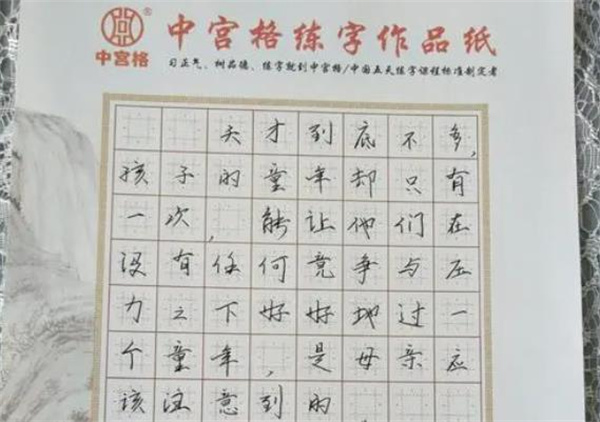 中宫格®
中宫格练字作品纸
习正气、树品德、练字就到中宫格/中国五天练字课程标准制定者
天才到底不多,
孩子的童年却只有
一次,能让他们在
没有任何竞争与压
力之下好好地过一
个童年,是母亲应
该注意到的